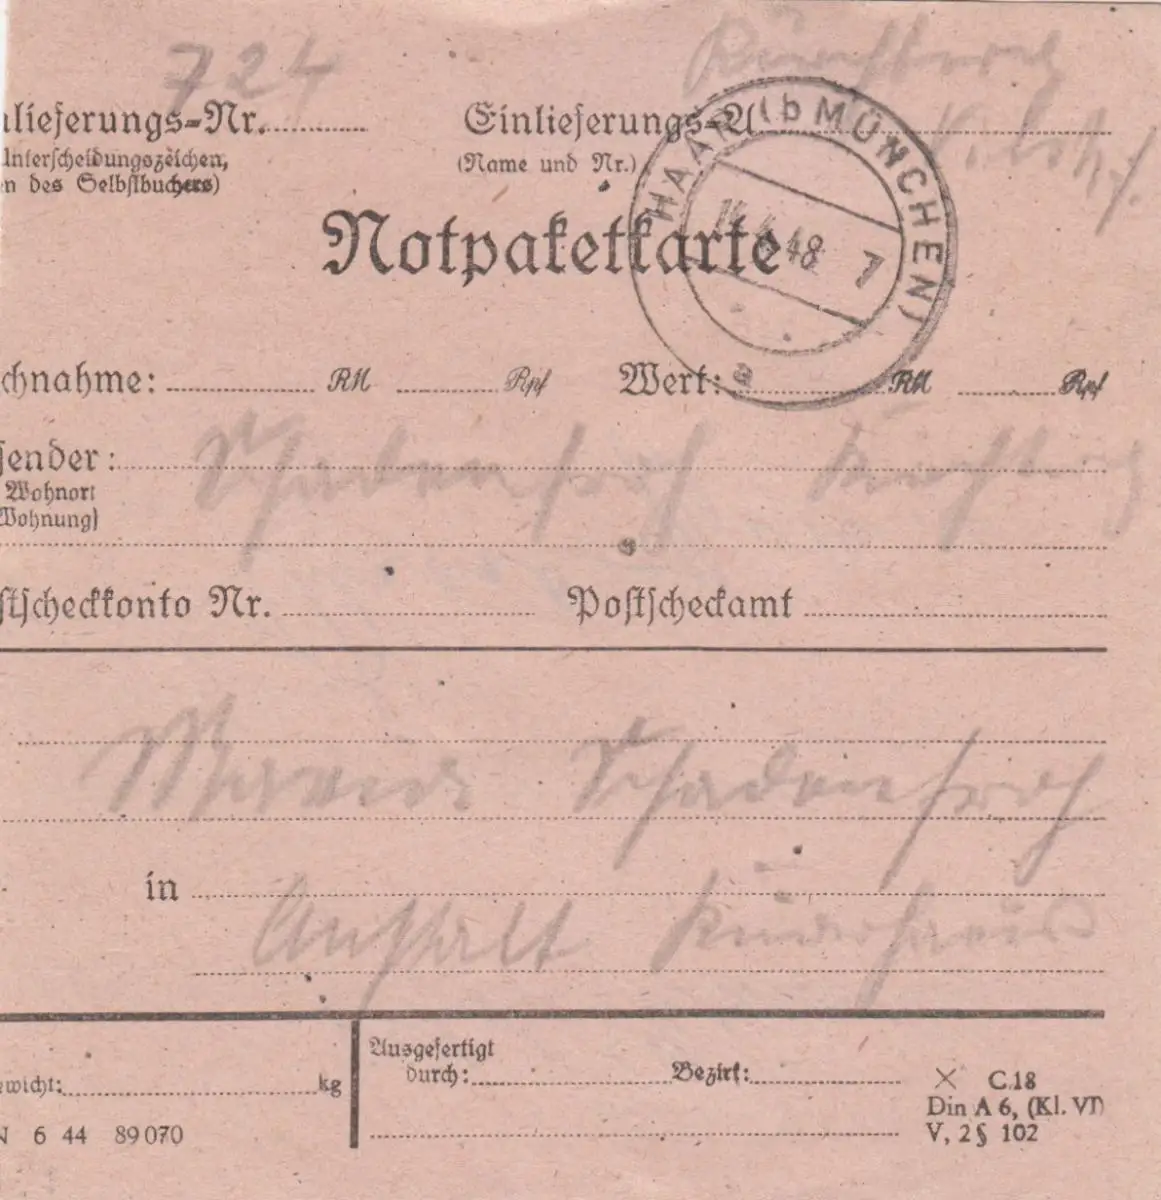 724
nlieferungs-Nr.
Unterscheidungszeichen,
n des Selbstbuchers)
Einlieferungs-A
(Name und Nr.)
HAAR (b MÜNCHEN)
14.4.48 1
Notpaketkarte
chnahme: RM Rpf Wert: RM Rpf
sender: Schadenfroh
Wohnort
Wohnung)
stscheckkonto Nr. Postscheckamt
Maria Schadenfroh
in
Anstalt
ewicht: kg
Ausgefertigt
durch: Bezirk:
N 6 44 89070
C 18
Din A 6, (Kl. VI)
V, 2 § 102